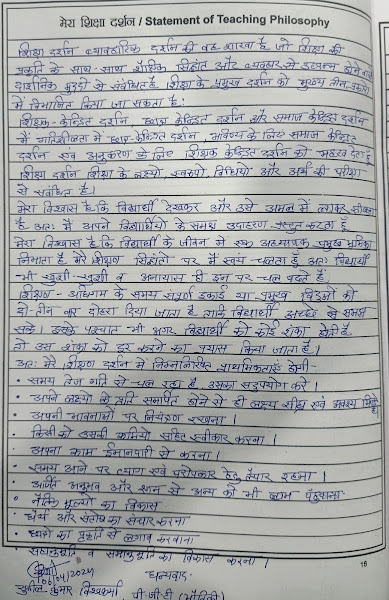 मेरा शिक्षा दर्शन / Statement of Teaching Philosophy
शिक्षा दर्शन व्यावहारिक दर्शन की वह शाखा है जो शिक्षा की
प्रकृति के साथ-साथ शैक्षिक सिद्धांत और व्यवहार से उत्पन्न होने वाले
दार्शनिक मुद्दों से संबंधित है। शिक्षा के प्रमुख दर्शन को मुख्य तीन प्रकार
में विभाजित किया जा सकता है:
शिक्षक-केन्द्रित दर्शन, छात्र केन्द्रित दर्शन और समाज केन्द्रित दर्शन
मैं गतिशीलता में छात्र-केन्द्रित दर्शन, भविष्य के लिए समाज केन्द्रित
दर्शन एवं अनुकरण के लिए शिक्षक केन्द्रित दर्शन को महत्व देता हूँ
शिक्षा दर्शन शिक्षा के लक्ष्यों, स्वरूपों, विधियों और अर्थ की परीक्षा
से संबंधित है।
मेरा विश्वास है कि विद्यार्थी देखकर और उसे अमल में लाकर सीखता
है अतः मैं अपने विद्यार्थियों के समक्ष उदाहरण प्रस्तुत करता हूँ
मेरा विश्वास है कि विद्यार्थी के जीवन में एक अध्यापक प्रमुख भूमिका
निभाता है मेरे शिक्षण सिद्धांतों पर मैं स्वयं चलता हूँ अतः विद्यार्थी
भी खुशी-खुशी व अनायास ही इन पर चल पड़ते हैं।
शिक्षण-अधिगम के समय संपूर्ण इकाई या प्रमुख बिंदुओं को
दो-तीन बार दोहरा दिया जाता है ताकि विद्यार्थी अच्छे से समझ
सकें। इसके पश्चात भी अगर विद्यार्थी को कोई शंका होती है
तो उस शंका को दूर करने का प्रयास किया जाता है।
अतः मेरे शिक्षण दर्शन में निम्नलिखित प्राथमिकताएं होंगी-
• समय तेज गति से चल रहा है उसका सदुपयोग करें।
• अपने लक्ष्यों के प्रति समर्पित होने से ही लक्ष्य शीघ्र एवं अवश्य मिलते हैं
• अपनी भावनाओं पर नियंत्रण रखना।
• किसी को उसकी कमियों सहित स्वीकार करना।
• अपना काम ईमानदारी से करना।
• समय आने पर त्याग एवं परोपकार हेतु तैयार रहना।
• अर्जित अनुभव और ज्ञान से अन्य को भी लाभ पहुंचाना
• नैतिक मूल्यों का विकास
• धैर्य और संतोष का संचार करना
• छात्रों का प्रकृति से लगाव करवाना
• सहानुभूति व समानुभूति का विकास करना।
धन्यवाद
06/04/2024
सुनील कुमार विश्वकर्मा पी.जी.टी (भौतिकी)
16